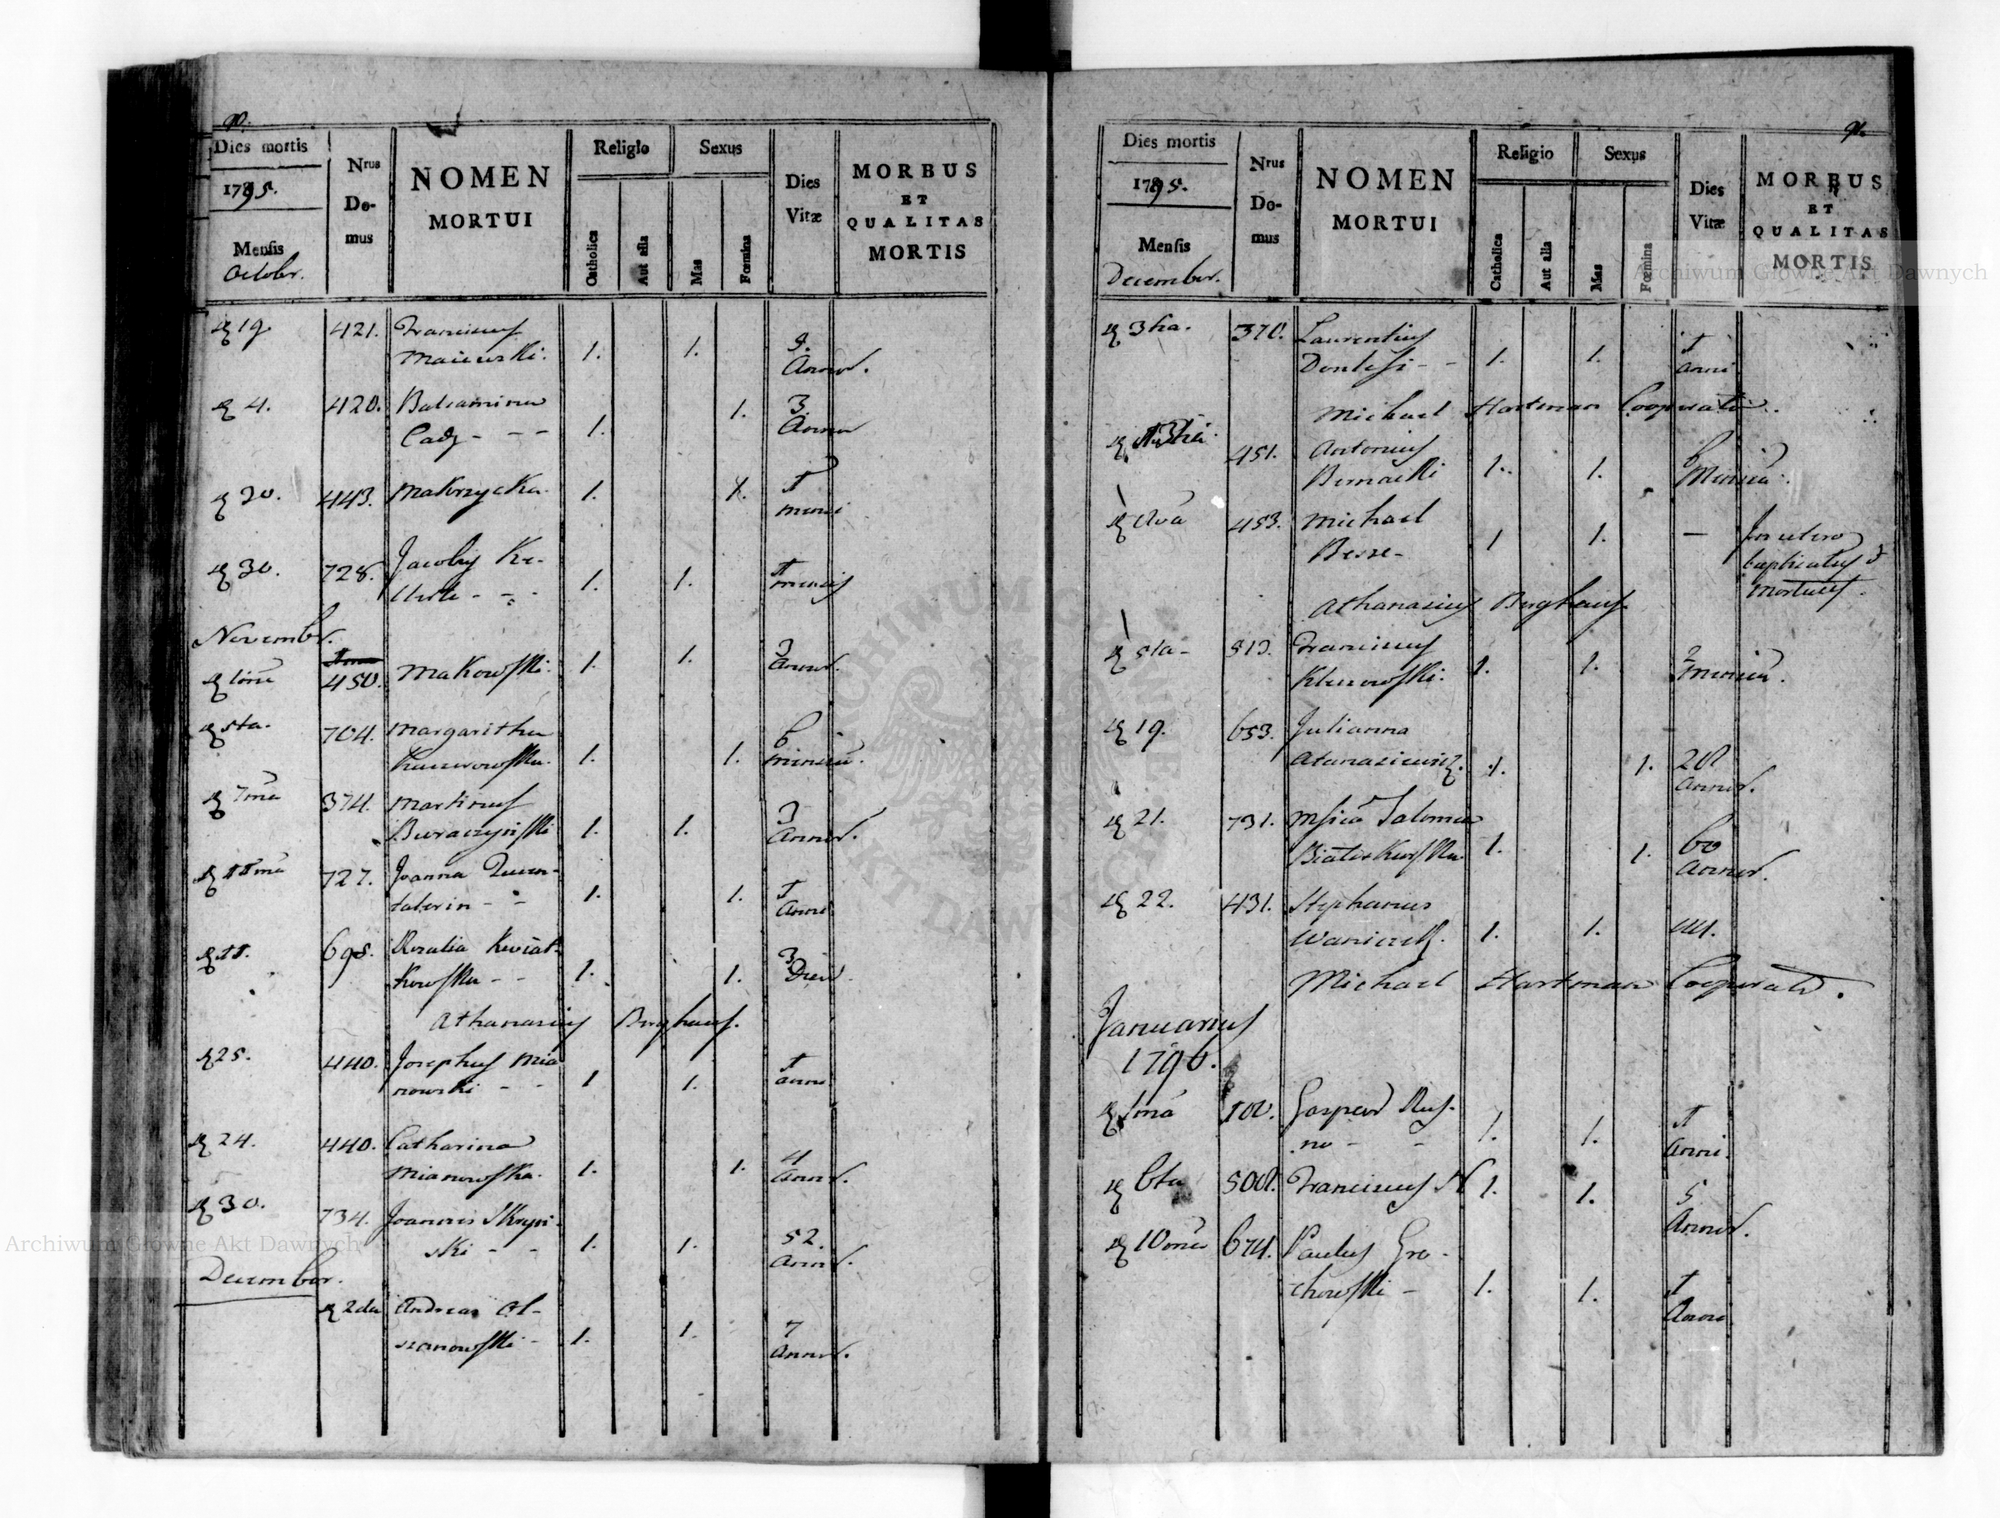 90.
Dies mortis
1795.
Mensis
Octobr.
Nrus
Do-
mus
NOMEN
MORTUI
Religio
Catholica
Aut alia
Sexus
Mas
Fœmina
Dies
Vitæ
MORBUS
ET
QUALITAS
MORTIS
19. 421. Franciscus
Maiewski. 1. 1. 9.
Annor.
4. 420. 3
1. 1. Annor
20. 443. Makrzycka. 1. 1. 1
mensi
30. 728. Jacobus Ke-
1. 1. 1 mensis
Novembr.
450. Makowski. 1. 1. 3
Annor.
5ta. 704. Margaritha 6
1. 1. mensiu.
7ma 374. Martinus 3
Buraczynski 1. 1. Annor.
11ma 727. Joanna
1. 1. 1
Anni
11. 695. Rosalia Kwiat-
kowska - - 1. 1. 3
Dier.
Athanasius Berghaus.
25. 440. Josephus Mia
nowski - - 1 1. 1
anni
24. 440. Catharina
Mianowska. 1. 1. 4
Annor.
30. 734. Joannes Skrzyn-
ski - - 1. 1. 52.
Annor.
December.
2da Andreas Ol-
szanowski - 1. 1. 7
Annor.
91.
Dies mortis
1795.
Mensis
December.
Nrus
Do-
mus
NOMEN
MORTUI
Religio
Catholica
Aut alia
Sexus
Mas
Fœmina
Dies
Vitæ
MORBUS
ET
QUALITAS
MORTIS
3tia. 370. Laurentius
1. 1. 1
Anni
Michael Hartman Cooperator.
451. Antonius
Biernacki 1. 1. 6
Mensiu.
453. Michael
Besse - 1 1. — In utero
baptisatus et
mortuus.
Athanasius Berghaus
5ta - 513. Franciscus
1. 1. 2
mensiu.
19. 653. Julianna
Atanasiewicz. 1. 1. 20
Annor.
21. 731. Salomea
1. 1. 60
Annor.
22. 431. Stephanus
1. 1.
Michael Hartman Cooperator.
Januarius
1796.
1ma 100. Gasper Rus-
no - - 1. 1. 1
Anni.
6ta 500. Franciscus N 1. 1. 5
Annor.
10ma 674. Paulus Gro-
chowski - 1. 1. 1
Anni
Archiwum Główne Akt Dawnych
Archiwum Główne Akt Dawnych
ARCHIWUM GŁÓWNE
AKT DAWNYCH